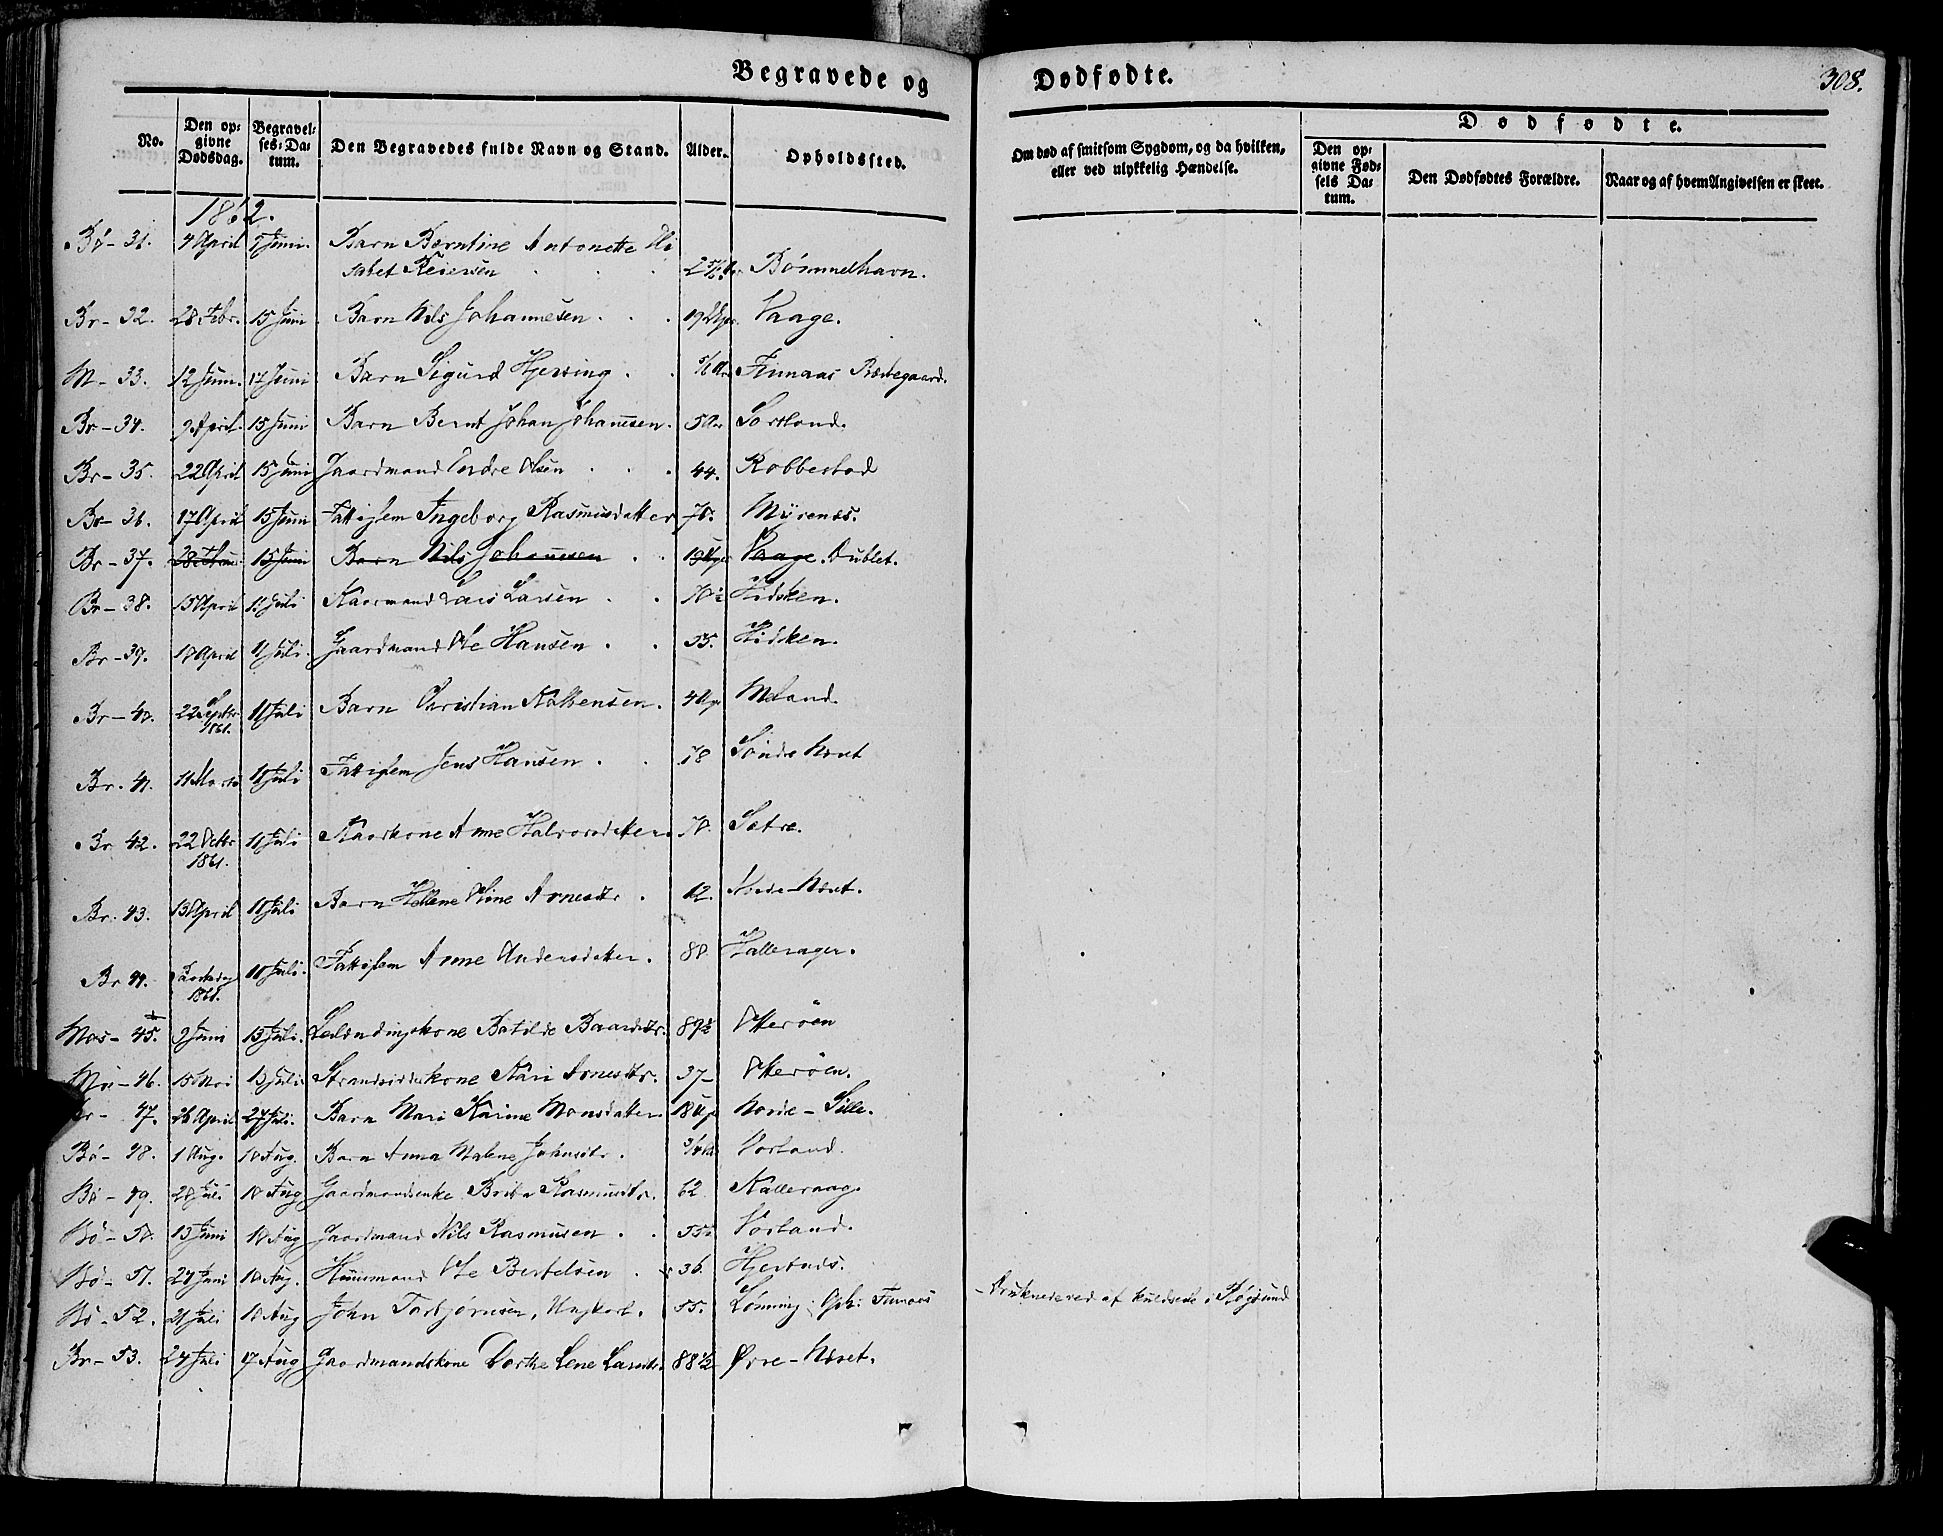 Begravede og
Dødfødte.
308.
No.
Den opgivne Dødsdag.
Begravelses-Datum.
Den Begravedes fulde Navn og Stand.
Alder.
Opholdssted.
Om død af smitsom Sygdom, og da hvilken, eller ved ulykkelig Hændelse.
Dødfødte.
Den opgivne Fødsels Datum.
Den Dødfødtes Forældre.
Naar og af hvem Angivelsen er skeet.
1862.
Bø - 31. 4 April Juni. Barn Berntine Antonette
Reiersen Bømmelhavn.
Br - 32. 28 Febr. 15 Juni Barn Nils Johannesen 19 Uger Vaage.
M - 33. 12 Juni. 17 Juni Barn Sigurd Hjersing Finnaas Præstegaard.
Br - 34. 9 April. 15 Juni Barn Bernt Johan Johannesen. 5 Sortland.
Br - 35. 22 April 15 Juni Gaardmand Endre Olsen 44. Robbestad
Br - 36. 17 April 15 Juni Fattiglem Ingeborg Rasmusdatter 70. Myrenes.
Br - 37. 15 Juni Barn Nils Johannesen 19 Uger Vaage. Dublet.
Br - 38. 15 April 11 Juli Kaarmand Lars Larsen Hidsken.
Br - 39. 18 April 11 Juli. Gaardmand Ole Hansen 55. Hidsken.
Br - 40. 22 Septbr 1861. 11 Juli Barn Christian 4 Uger Meland.
Br. 41. 11 Marts 11 Juli Fattiglem Jens Hansen 78 Søndre Næset
Br. 42. 22 Octbr 1861. 11 Juli Kaarkone Anne Halvorsdatter 70. Sætre.
Br. 43. 13 April 11 Juli Barn Hellene Oline Arnesdtr 12. Nordre-Næset.
Br 44. 1861. 11 Juli. Fattiglem Anne Andersdatter. 80 Hallerager.
Mos - 45. 9 Juni 13 Juli. Selændingskone Batilde Baardsdtr. 89½ Otterøen
Mo - 46. 15 Mai 13 Juli Strandsidderkone Kari Arnesdtr. 37 - Otterøen.
Br - 47. 26 April 27 Juli. Barn Mari Karine Monsdatter 18 Uger Nordre - Sille.
Bø - 48. 1 Aug. 10 Aug. Barn Anna Malene Johnsdtr. 3/4 Vorland.
Bø - 49. 28 Juli 10 Aug Gaardmandsenke Brita Rasmusdtr. 62 Kalleraag.
Bø - 50. 13 Juni 10 Aug Gaardmand Nils Rasmusen 55 Vorland.
Bø - 51. 24 Juni 10 Aug. Huusmand Ole Bertelsen 36. Hjertnæs.
Bø - 52. 21 Juli 10 Aug John Torbjørnsen, Ungkarl. 55. Lønning, Oph: Finnaas - Druknede ved at kuldseile i Røgsund
Br - 53. 24 Juli 17 Aug Gaardmandskone Dorthe Lene Larsdtr. 88½ Øvre - Næset.